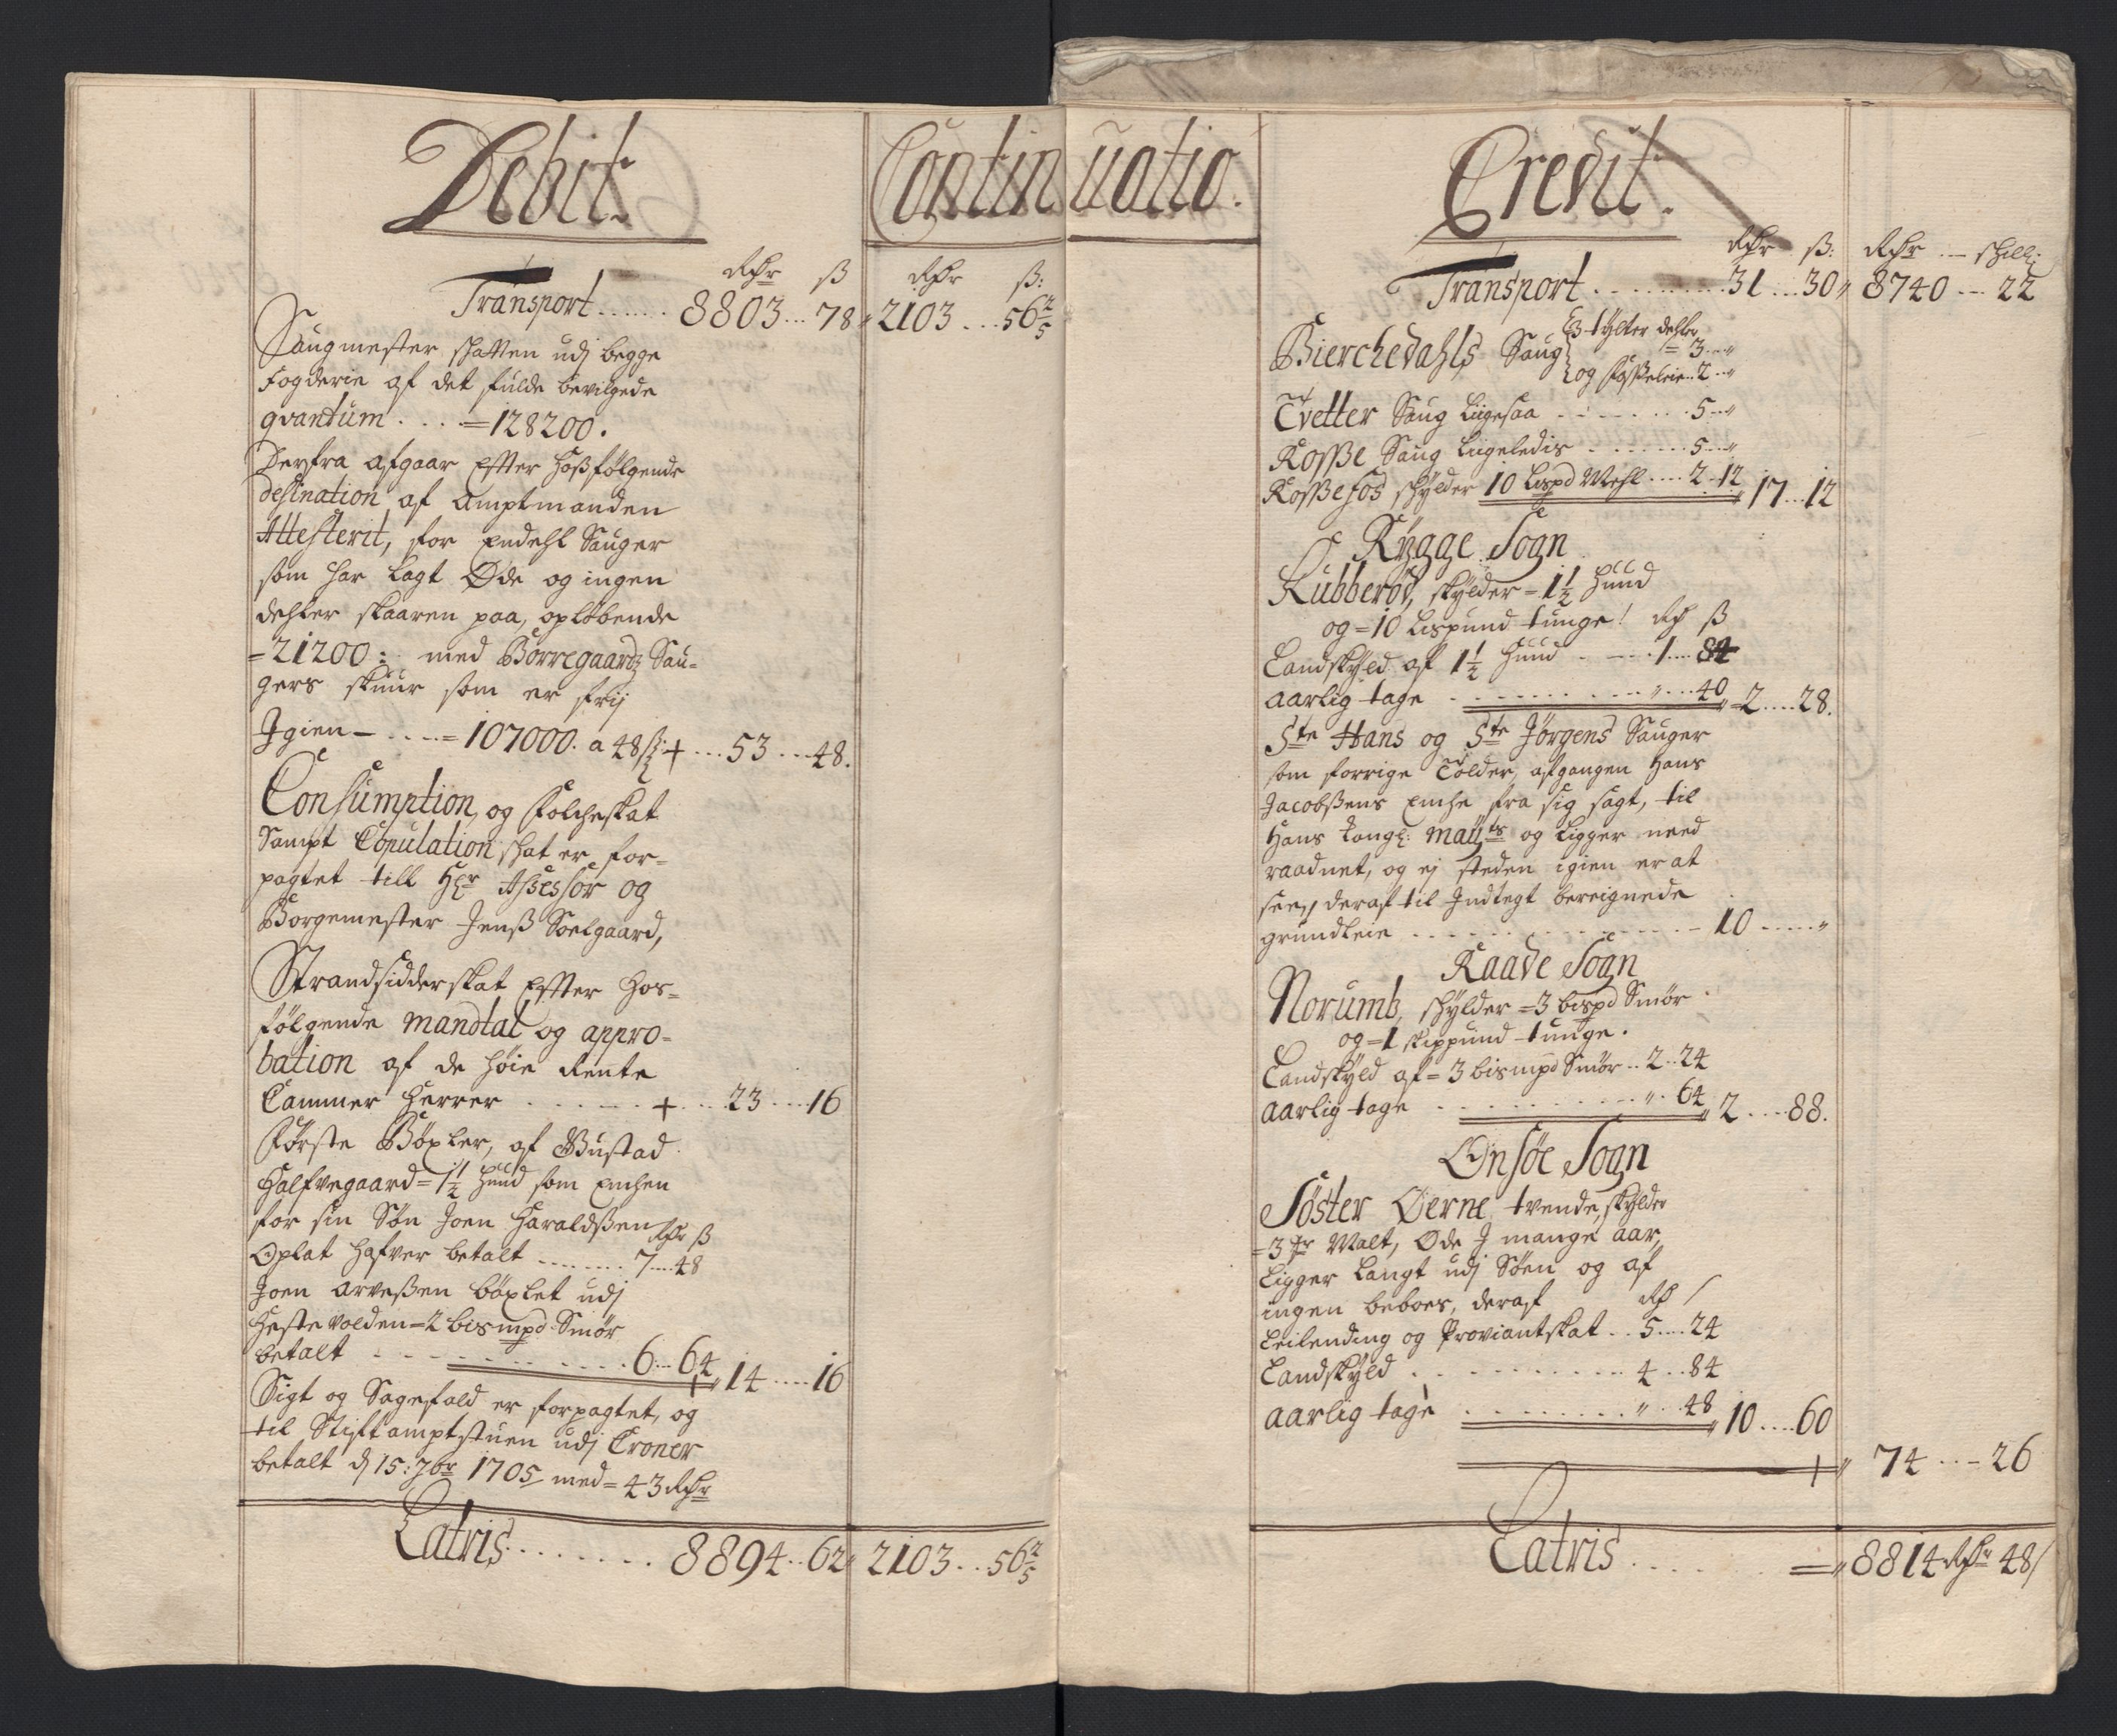 Debit. Continuatio. Credit.
Rdr ß Rdr ß:
Transport...... 8803...78 2103...56 2/5
Saugmester skatten udj begge
Fogderie af det fulde bevilgede
qvantum....=128200.
Derfra afgaar Efter hoßfølgende
desination af Amptmanden
Attesterit, for Endehl Sauger
som har Lagt Øde og ingen
dehler skaaren paa, opløbende
=21200: med Borregaardz Sau=
gers skuur som er frij
Igien - ....=107000. a 48 ß + ...53...48.
Consumption, og Folcheskat
Sampt Copulation skat er for=
pagtet till Hr Assessor og
Borgemester Jenß Soelgaard,
Strandsidderskat Efter hos=
følgende mandtal og appro=
bation af de høie Rente
Cammer Herrer ...... + ...23....16
Første Böxler, af Bustad
Halfvegaard=1 1/2 hud som Enchen
for sin Søn Joen Haraldßen Rdr ß
Oplat hafver betalt ........ 7....48
Joen Arveßen böxlet udj
Hestevolden=2 bismpd Smør
betalt ............. 6...64 14....16
Sigt og Sagefald er forpagtet, og
til Stiftamptstuen udj Croner
betalt dj 15: 7br 1705 med=43 Rdr
Latris........ 8894..62 2103...56 2/5
Rdr ß: Rdr --- skill:
Transport ......... 31...30 8740 --- 22
Bierchedahls Saug 3 tylter dehler = 3...
og foßeleie..2...
Tvetter Saug Liigesaa ........5...
Roßße Saug Liigeledis ........5...
Roßßefos skylder 10 Lispd Mehl ....2..12 17...12
Rygge Sogn
Rubberød, skylder = 1 1/2 hud
og=10 Lispund tunge! Rd ß
Landskyld af 1 1/2 hud ....1....84
aarlig tage .............40 2....28.
Ste Hans og Ste Jørgens Sauger
som forrige Tolder, afgangen Hans
Jacobßens Enche fra sig sagt, til
Hans Kongl: Maijts og Ligger need
raadnet, og ej steden igien er at
see, deraf til Indtegt bereignede
grundleie ................ 10 .....
Raade Sogn
Norumb, skylder =3 bispd Smør
og=1 skippund tunge.
Landskyld af= 3 bismpd Smør .. 2..24
aarlig tage ............ 64 2....88.
Onsøe Sogn
Søster Øerne tvende, skylder
=3 tr Malt, Øde I mange aar,
Ligger Langt udj Søen og af
ingen beboes, deraf Rd ß
Leilending og Proviantskat .. 5....24
Landskyld ............ 4...84
aarlig tage ............48 10....60
+ 74...-26
Latris ......... = 8814 Rdr 48 ß